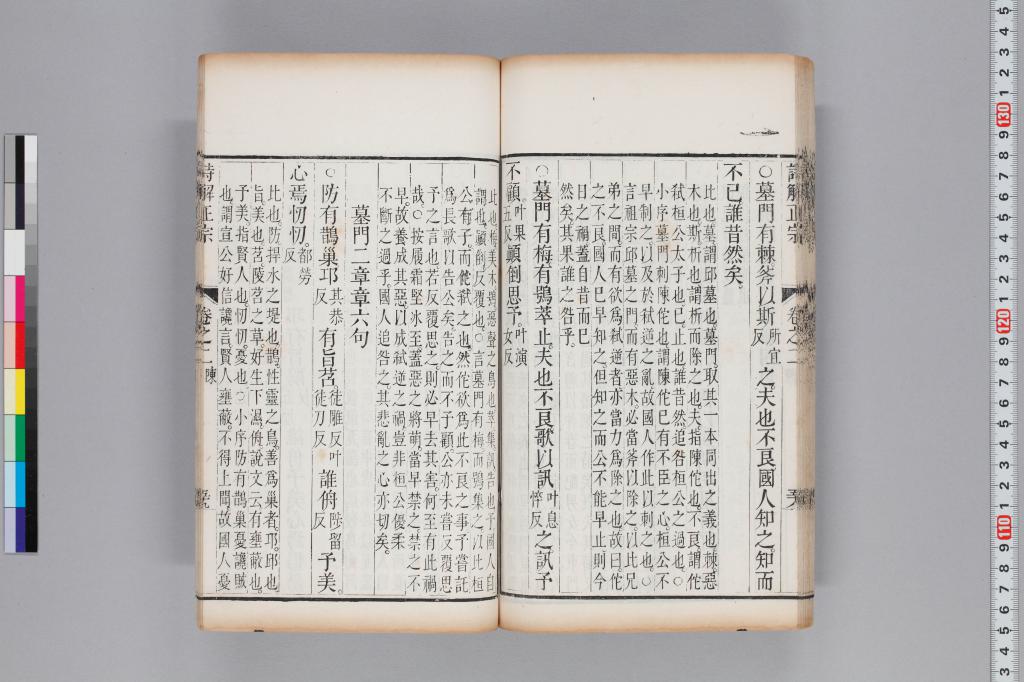 詩解正宗 卷之二 陳
○墓門有棘斧以斯所宜反之夫也不良國人知之知而
不已誰昔然矣
比也墓謂邱墓也墓門取其一本同出之義也棘惡
木也斯析也謂析而除之也夫指陳佗也不良謂佗
弒桓公太子也已止也誰昔然追咎桓公之過也○
小序墓門刺陳佗也謂陳佗已有不臣之心桓公不
早制之以及於弒逆之亂故國人作此以刺之也○
言祖宗邱墓之門而有惡木必當斧以除之以比兄
弟之間而有欲為弒逆者亦當力為除之也故曰佗
之不良國人已早知之但知之而公不能早止則今
日之禍蓋自昔而已
然矣其果誰之咎乎
○墓門有梅有鴞萃止夫也不良歌以訊叶息悴反之訊予
不顧叶果五反顛倒思予叶演女反
比也梅美木鴞惡聲之鳥也萃集訊告也予國人自
謂也顛倒反覆也○言墓門有梅而鴞集之以比桓
公有子而佗弒之也然佗欲為此不良之事予嘗託
為長歌以告公矣告之而不予顧公亦未嘗反覆思
予之言也若反覆思之則必早去其害何至有此禍
哉○按履霜堅冰至蓋惡之將萌當早禁之禁之不
早故養成其惡以成弒逆之禍豈非桓公優柔
不斷之過乎國人追咎之其悲亂之心亦切矣
墓門二章章六句
○防有鵲巢邛其恭反有旨苕徒雕反叶徒刀反誰侜陟留反予美
心焉忉忉都勞反
比也防捍水之堤也鵲性靈之鳥善為巢者邛邱也
旨美也苕陵苕之草好生下濕侜說文云有壅蔽也
予美指賢人也忉忉憂也○小序防有鵲巢憂讒賊
也謂宣公好信讒言賢人壅蔽不得上聞故國人憂
詩解正宗 卷之二 陳